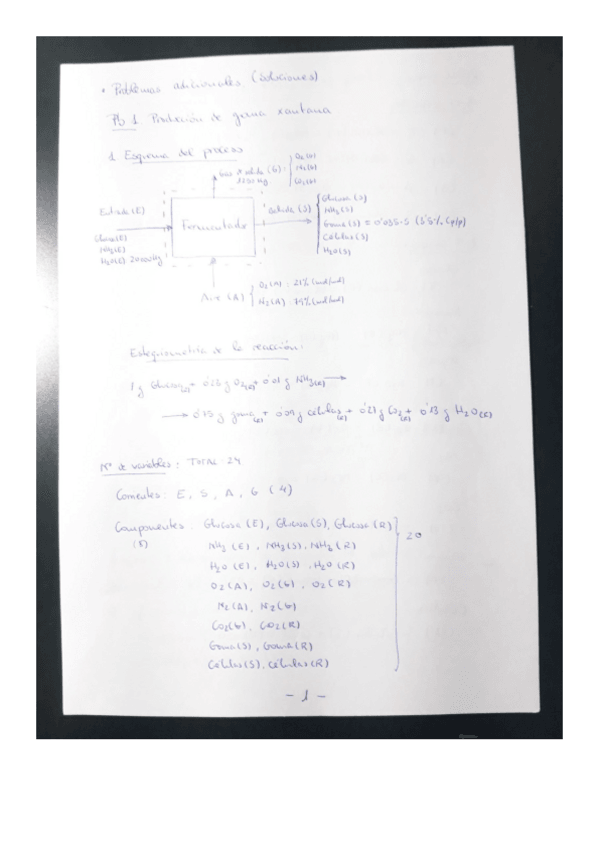 • Problemas adicionales (soluciones)
Pb 1 Producción de goma xantana
1. Esquema del proceso
Gas salida (G)
1250 kg
O2(G)
N2(G)
CO2(G)
Entrada (E)
Glucosa (E)
NH3(E)
H2O(E) 20000 kg
Fermentador
Salida (S)
Glucosa (S)
NH3(S)
Goma (S) = 0'035·S (3'5% (p/p)
Células (S)
H2O(S)
Aire (A)
O2(A) : 21% (mol/mol)
N2(A) : 79% (mol/mol)
Estequiometría de la reacción:
1 g Glucosa(R) + O2(R) + 0'01 g NH3(R) →
→ g goma(R) + 0'09 g células(R) + 0'21 g CO2(R) + 0'13 g H2O(R)
Nº de variables : TOTAL 24
Corrientes : E, S, A, G (4)
Componentes : Glucosa (E), Glucosa (S), Glucosa (R)
(8)
NH3 (E), NH3(S), NH3(R)
H2O (E), H2O(S), H2O (R)
O2(A), O2(G), O2(R)
20
N2(A), N2(G)
CO2(G), CO2(R)
Goma(S), Goma(R)
Células(S), Células(R)
- 1 -